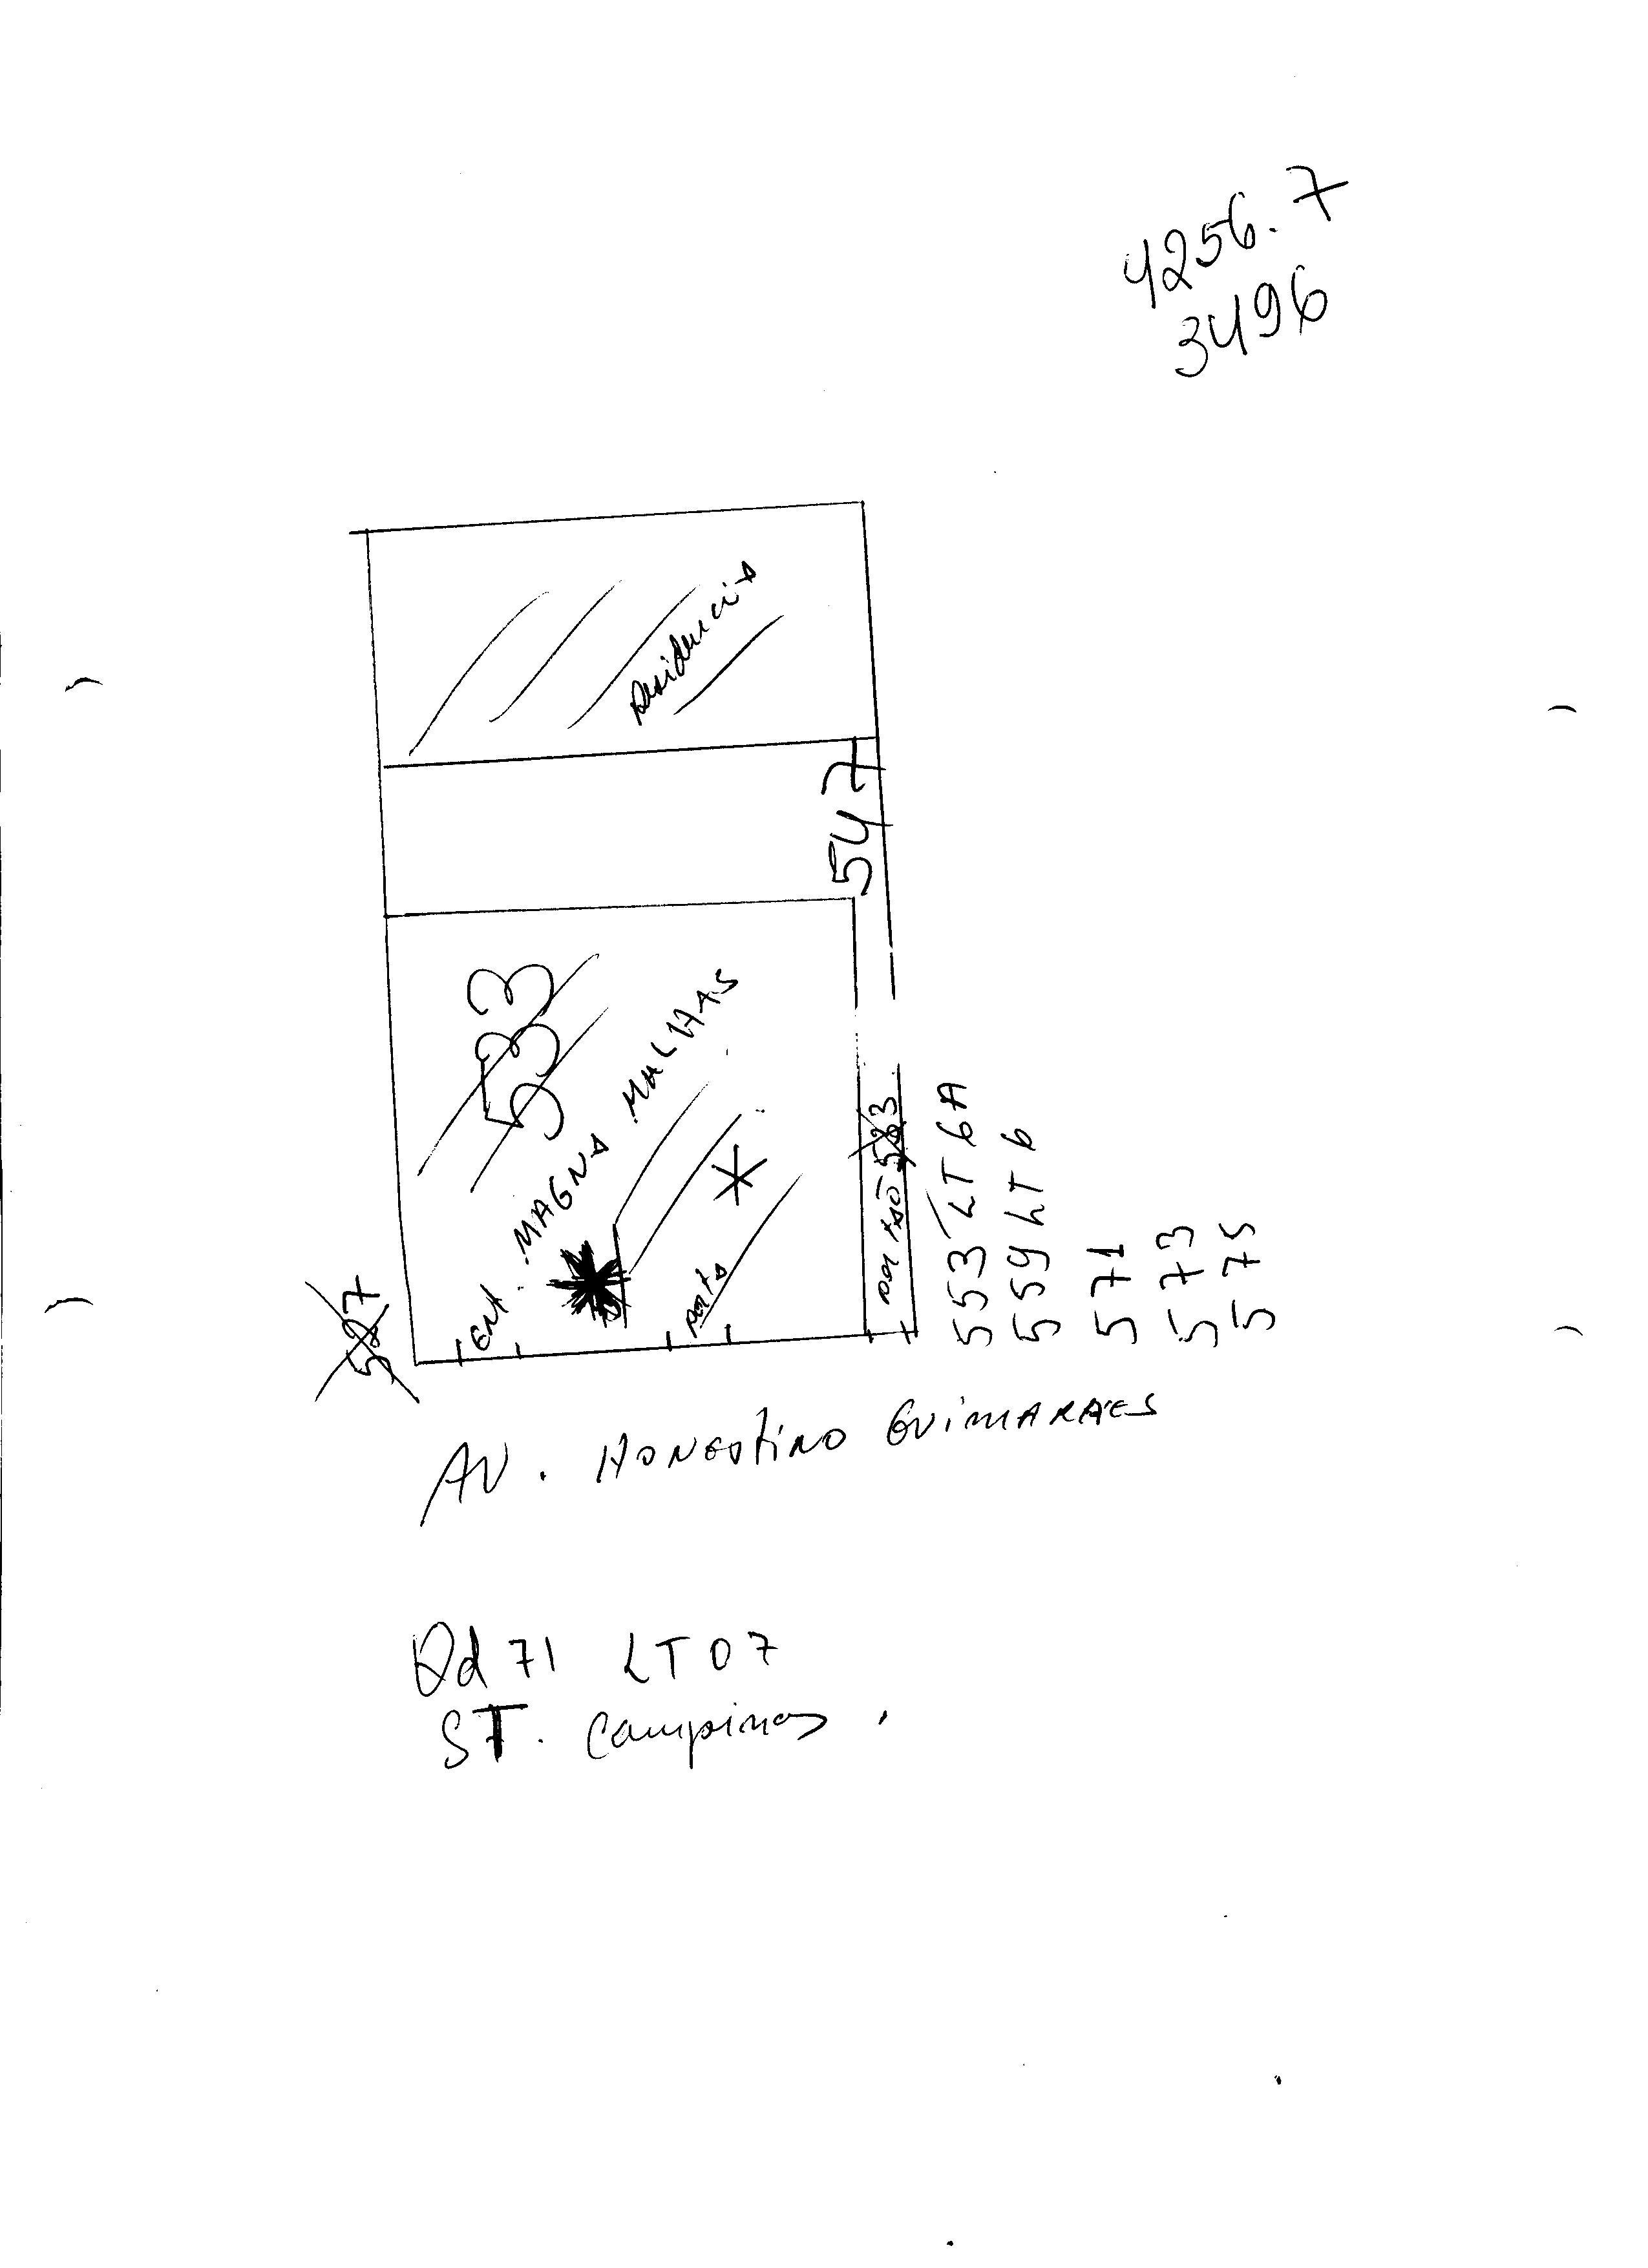 4256.7
3496
Residencia
547
533
MAGNA MALHAS
ENT.
porta
portão 533
527
553 LT 6A
559 LT 6
571
573
575
AV. HONESTINO GUIMARAES
Qd 71 LT 07
ST. Campinas.